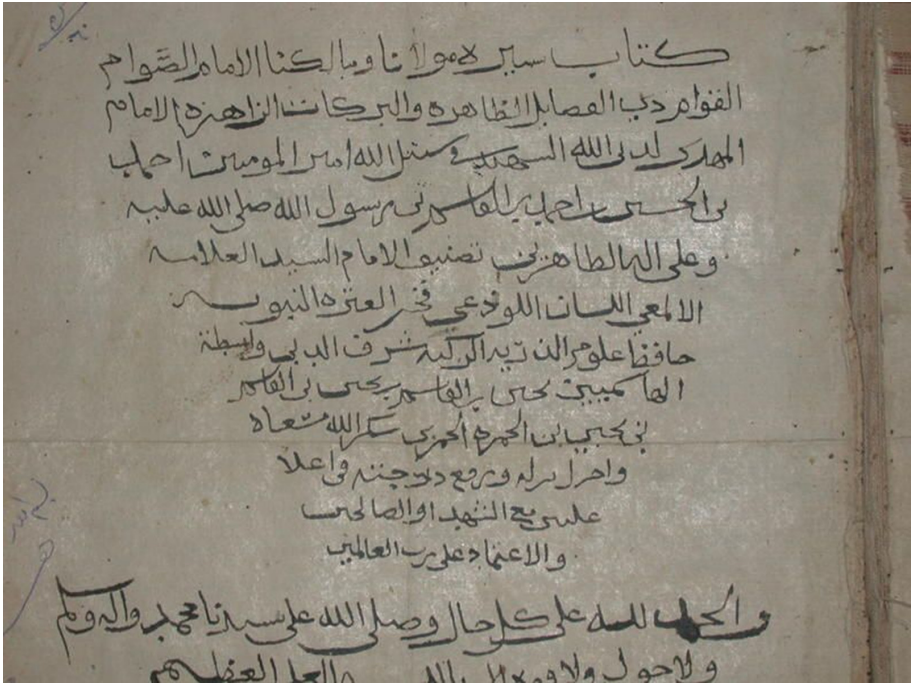 كتاب سيرة مولانا ومالكنا الامام الصَّوام
القوام ذي الفضايل الظاهره والبركات الزاهره الامام
المهدي لدين الله الشهيد في سبيل الله امير المومنين احمد
بن الحسين بن احمد بن القاسم بن رسول الله صلى الله عليه
وعلى اله الطاهرين تصنيف الامام السيد العلامه
الالمعي اللسان اللوذعي فخر العتره النبويه
حافظ علوم الذريه الزكيه شرف الدين وواسطة
القاسميين يحيى بن القاسم بن يحيى بن القاسم
بن يحيى بن الحمزه الحمزي شكر الله مسعاه
واجزل نزله ورفع درجته في اعلا
عليين مع الشهدا والصالحين
والاعتماد على رب العالمين
والحمد لله على كل حال وصلى الله على سيدنا محمد واله وسلم
ولا حول ولا قوه الا بالله العلي العظيم